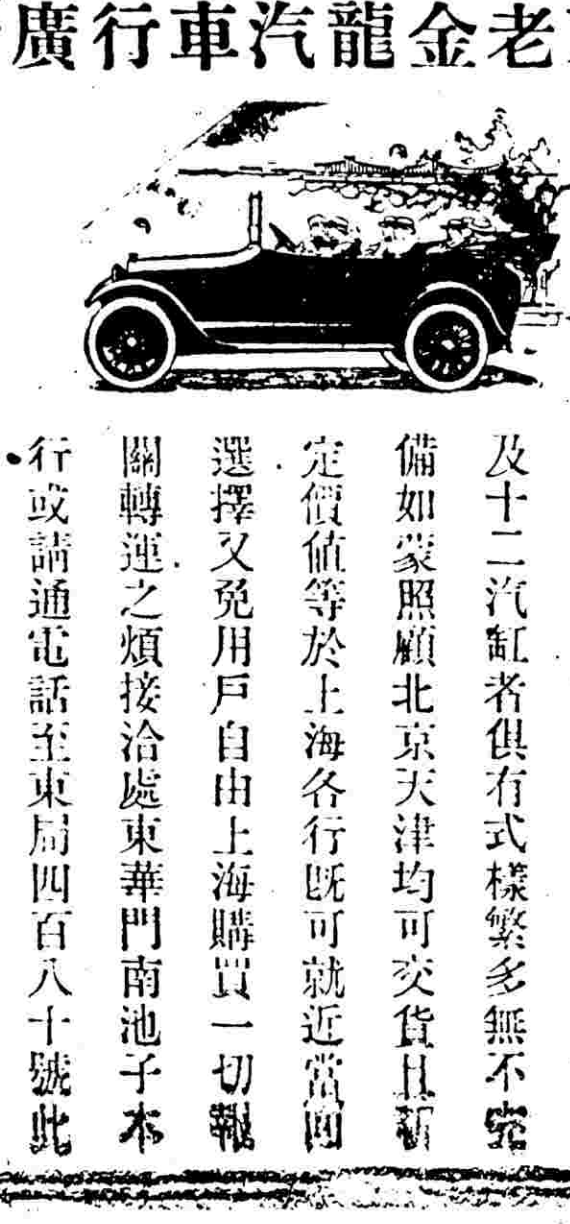 老金龍汽車行廣
及十二汽缸者俱有式樣繁多無不完
備如蒙照顧北京天津均可交貨且新
定價值等於上海各行既可就近當面
選擇又免用戶自由上海購買一切報
關轉運之煩接洽處東華門南池子本
行或請通電話至東局四百八十號此